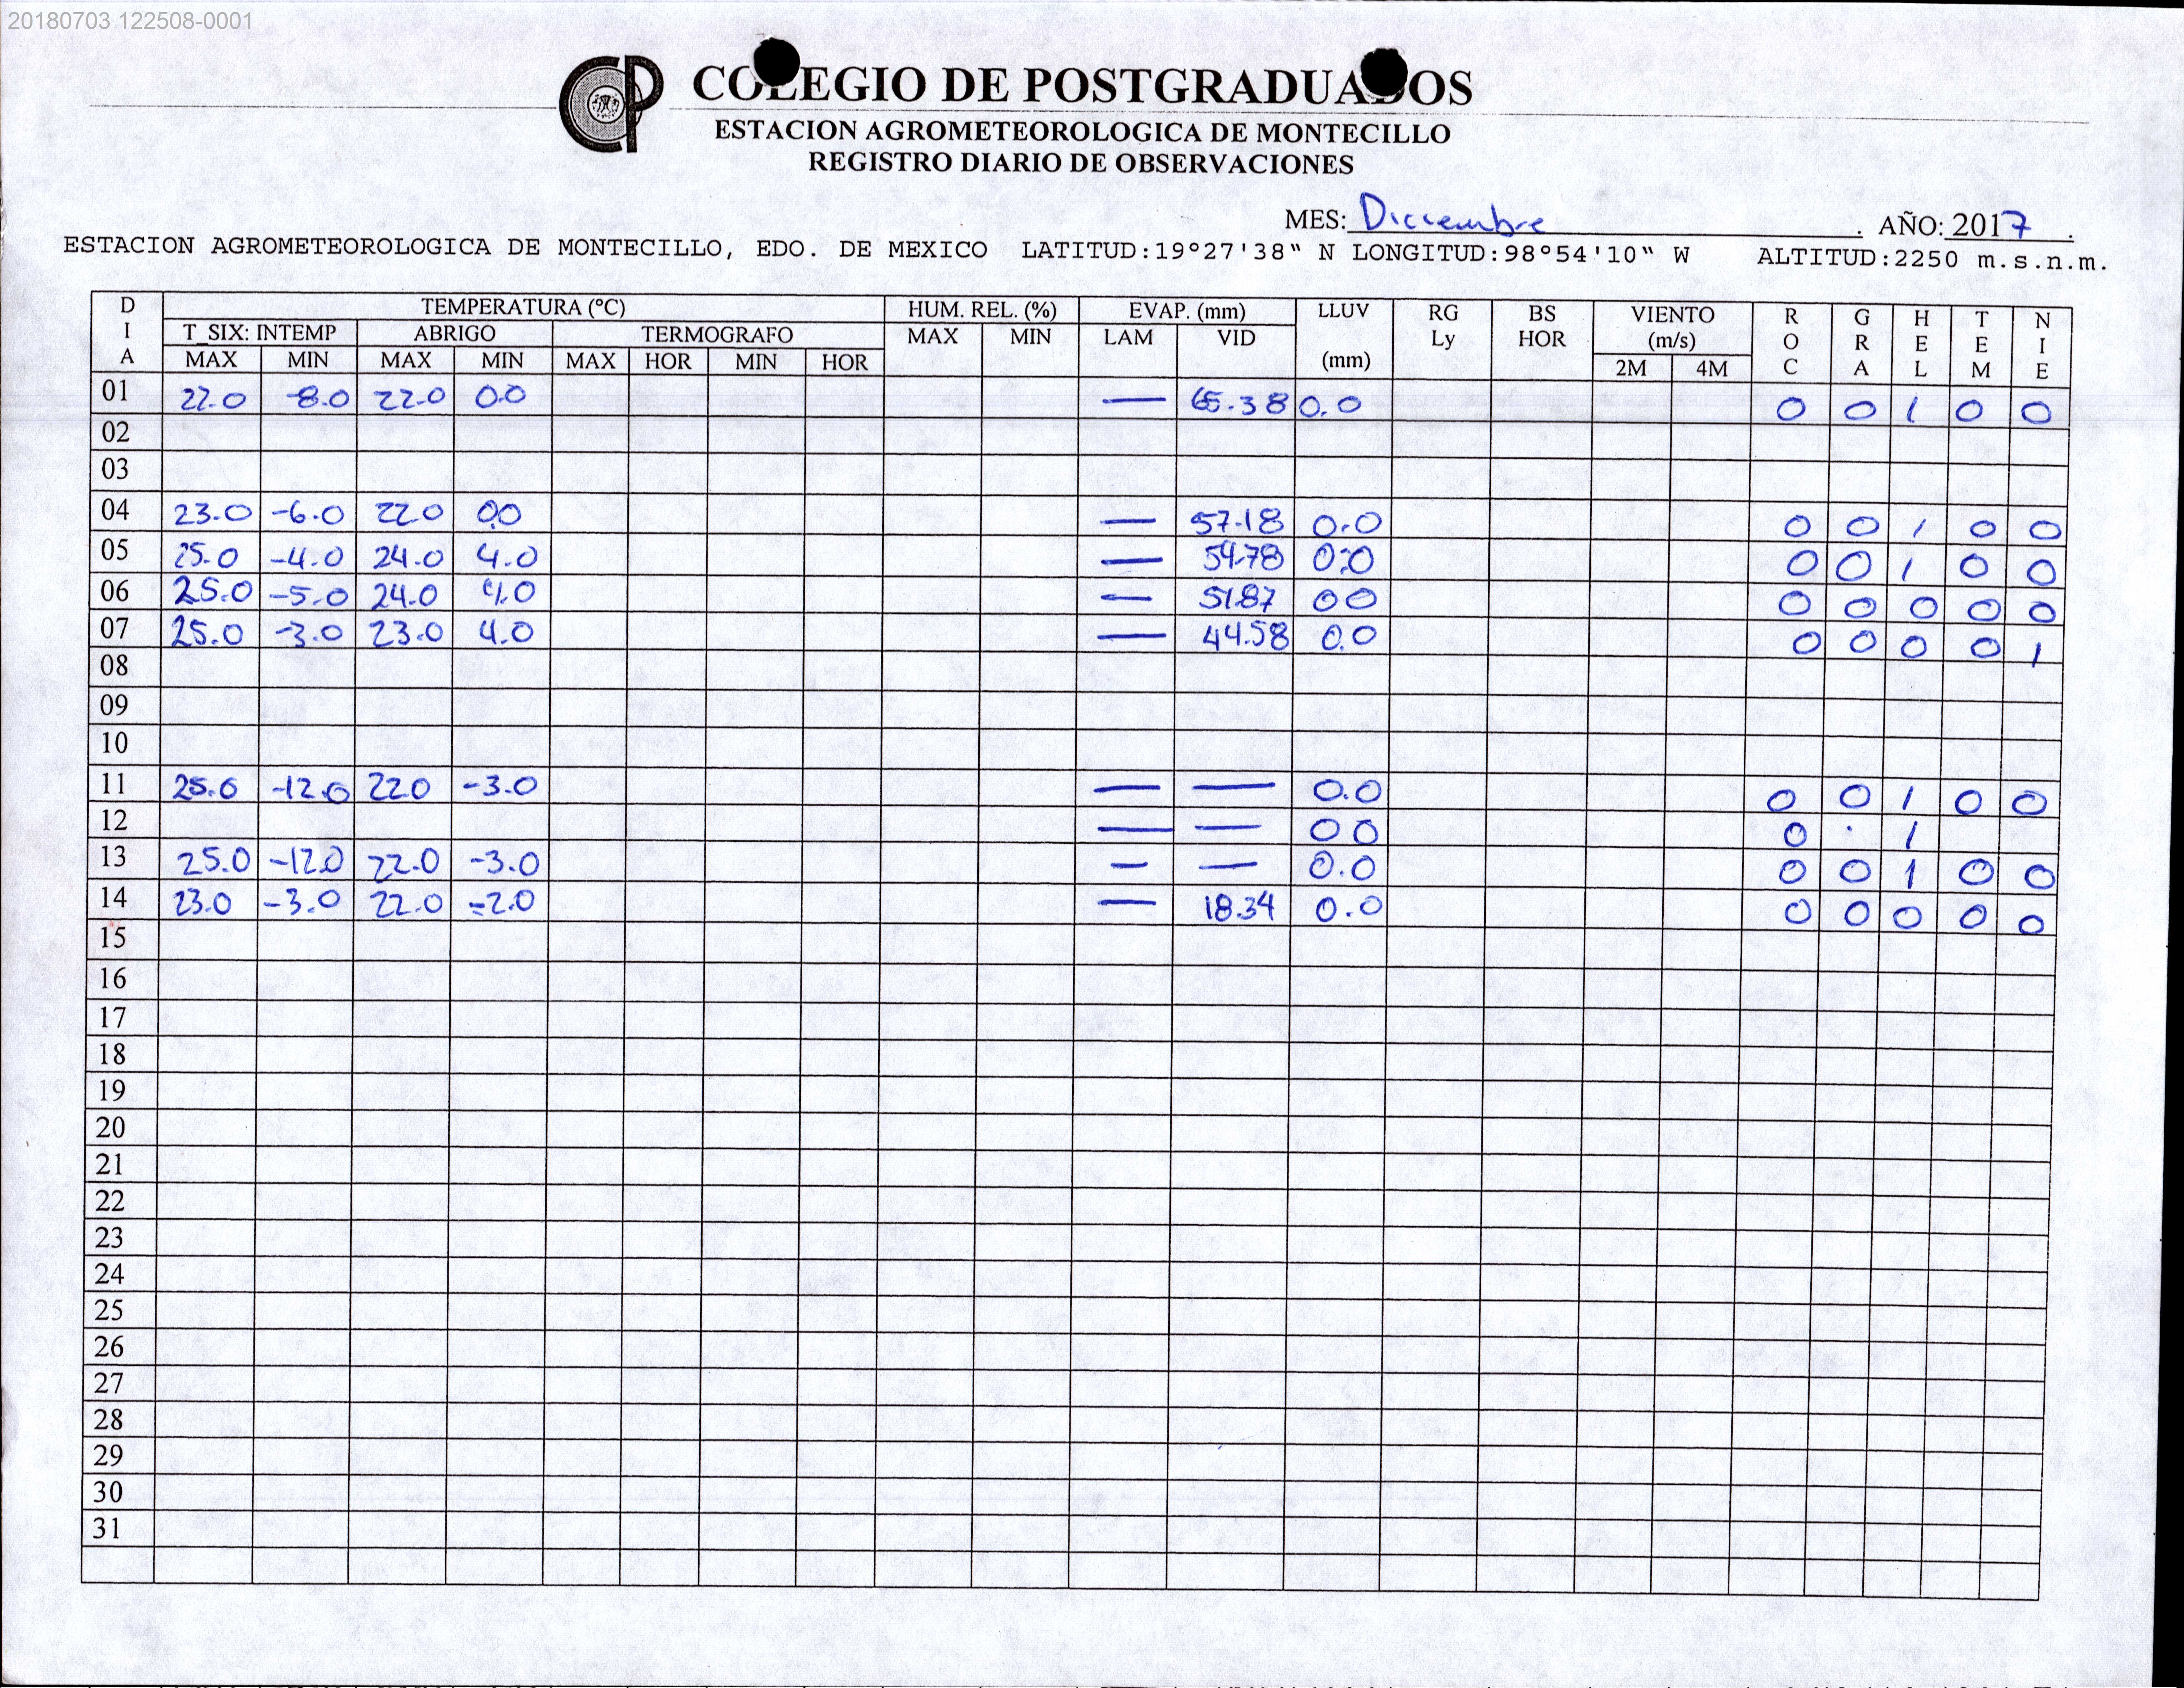 20180703 122508-0001
COLEGIO DE POSTGRADUADOS
ESTACION AGROMETEOROLOGICA DE MONTECILLO
REGISTRO DIARIO DE OBSERVACIONES
MES: Diciembre . AÑO: 2017 .
ESTACION AGROMETEOROLOGICA DE MONTECILLO, EDO. DE MEXICO LATITUD:19°27'38" N LONGITUD:98°54'10" W ALTITUD:2250 m.s.n.m.
DIA TEMPERATURA (ºC) HUM. REL. (%) EVAP. (mm) LLUV (mm) RG Ly BS HOR VIENTO (m/s) ROC GRA HEL TEM NIE
T_SIX: INTEMP ABRIGO TERMOGRAFO MAX MIN LAM VID
MAX MIN MAX MIN MAX HOR MIN HOR 2M 4M
01 22.0 -8.0 22.0 0.0 — 65.38 0.0 0 0 1 0 0
02
03
04 23.0 -6.0 22.0 0.0 — 57.18 0.0 0 0 1 0 0
05 25.0 -4.0 24.0 4.0 — 54.78 0.0 0 0 1 0 0
06 25.0 -5.0 24.0 4.0 — 51.87 00 0 0 0 0 0
07 25.0 -3.0 23.0 4.0 — 44.58 0.0 0 0 0 0 1
08
09
10
11 25.0 -12.0 22.0 -3.0 — — 0.0 0 0 1 0 0
12 — — 00 0 · 1
13 25.0 -12.0 22.0 -3.0 — — 0.0 0 0 1 0 0
14 23.0 -3.0 22.0 -2.0 — 18.34 0.0 0 0 0 0 0
15
16
17
18
19
20
21
22
23
24
25
26
27
28
29
30
31